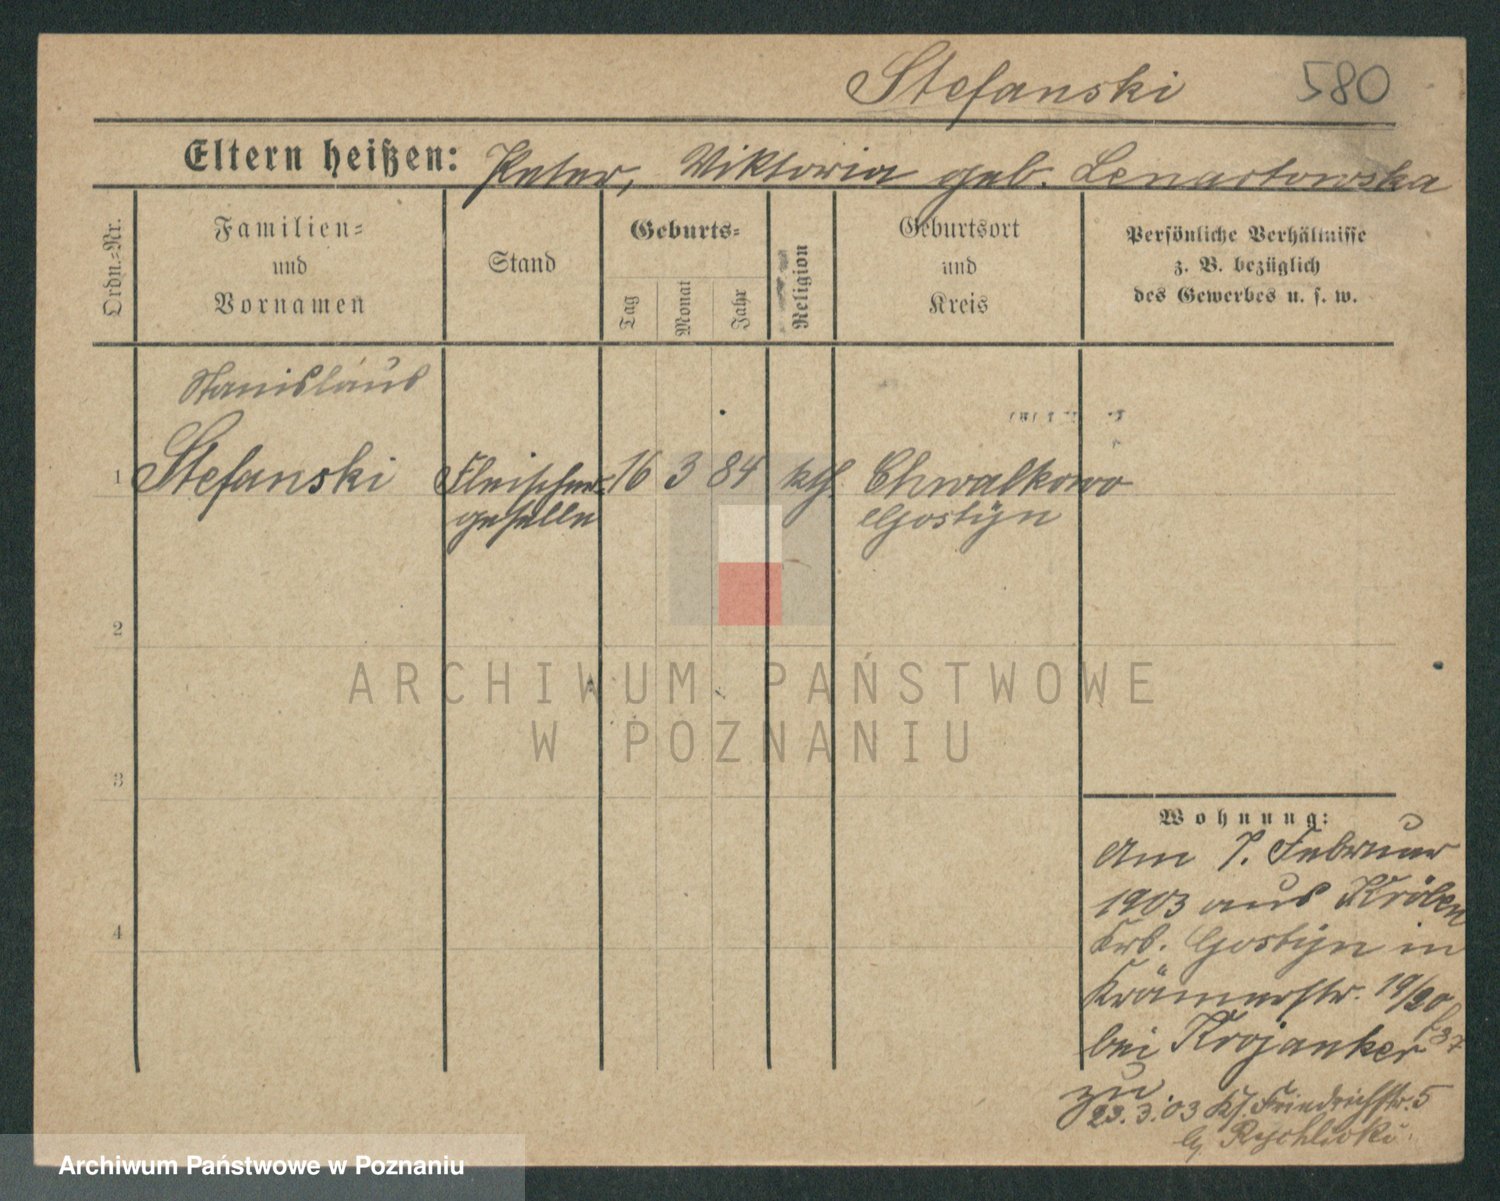 Stefanski 580
Eltern heißen: Peter, Viktoria geb. Lenartowska
Ordn.-Nr.
Familien-
und
Vornamen
Stand
Geburts-
Tag
Monat
Jahr
Religion
Geburtsort
und
Kreis
Persönliche Verhältnisse
z. B. bezüglich
des Gewerbes u. s. w.
Stanislaus
1 Stefanski Fleischer- 16 3 84 kth. Chwalkowo
geselle Gostyn
2
ARCHIWUM PAŃSTWOWE
W POZNANIU
3
Wohnung:
Am 7. Februar
1903 aus Kröben
4
Krb. Gostyn in
Krämerstr. 19/20
bei Krojanker
zu
23.3.03 Kl. Friedrichstr. 5
Rychlicki
Archiwum Państwowe w Poznaniu